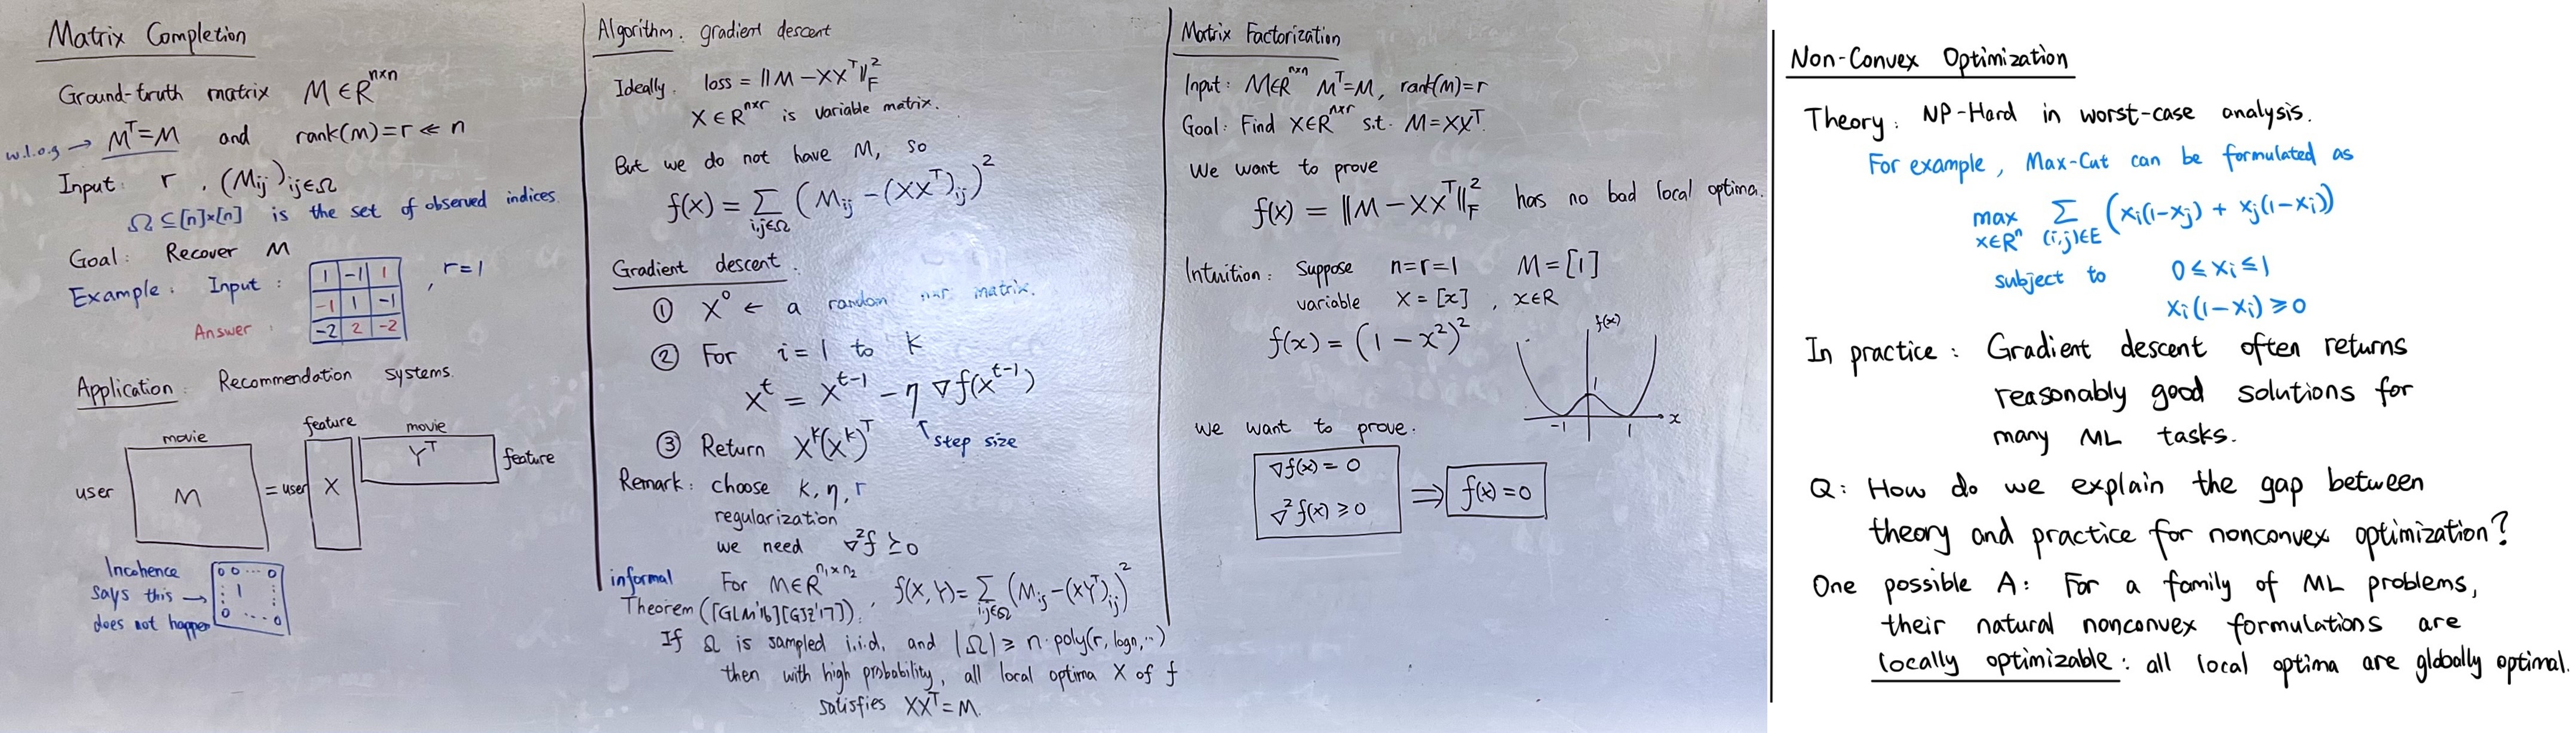 Matrix Completion
Ground-truth matrix M ∈ R^{n×n}
w.l.o.g → M^T = M and rank(M) = r ≪ n
Input: r, (M_{ij})_{ij∈Ω}
Ω ⊆ [n]×[n] is the set of observed indices.
Goal: Recover M
Example: Input: , r=1
1 -1 1
-1 1 -1
-2 2 -2
Answer:
Application: Recommendation systems.
movie feature movie
user M = user X Y^T feature
Incohence
says this →
does not happen
0 0 ... 0
⋮ 1 ⋮
0 ... 0
Algorithm: gradient descent
Ideally. loss = ‖M - XX^T‖_F^2
X ∈ R^{n×r} is variable matrix.
But we do not have M, so
f(x) = Σ_{i,j∈Ω} (M_{ij} - (XX^T)_{ij})^2
Gradient descent.
① X^0 ← a random n×r matrix.
② For i = 1 to k
X^t = X^{t-1} - η ∇f(X^{t-1})
↑ step size
③ Return X^k(X^k)^T
Remark: choose k, η, r
regularization
we need ∇^2 f ⪰ 0
For M∈R^{n_1×n_2}, f(X,Y) = Σ_{i,j∈Ω} (M_{ij} - (XY^T)_{ij})^2
informal
Theorem ([GLM'16][GJZ'17]).
If Ω is sampled i.i.d. and |Ω| ≥ n·poly(r, log n, ...)
then with high probability, all local optima X of f
satisfies XX^T = M.
Matrix Factorization
Input: M∈R^{n×n} M^T=M, rank(M)=r
Goal: Find X∈R^{n×r} s.t. M=XX^T.
We want to prove
f(x) = ‖M - XX^T‖_F^2 has no bad local optima.
Intuition: Suppose n=r=1 M=[1]
variable X=[x], x∈R
f(x) = (1-x^2)^2
f(x)
1
-1 1 x
we want to prove.
∇f(x) = 0
∇^2 f(x) ≥ 0
⟹ f(x)=0
Non-Convex Optimization
Theory: NP-Hard in worst-case analysis.
For example, Max-Cut can be formulated as
max_{x∈R^n} Σ_{(i,j)∈E} (x_i(1-x_j) + x_j(1-x_i))
subject to 0 ≤ x_i ≤ 1
x_i(1-x_i) ≥ 0
In practice: Gradient descent often returns
reasonably good solutions for
many ML tasks.
Q: How do we explain the gap between
theory and practice for nonconvex optimization?
One possible A: For a family of ML problems,
their natural nonconvex formulations are
locally optimizable: all local optima are globally optimal.